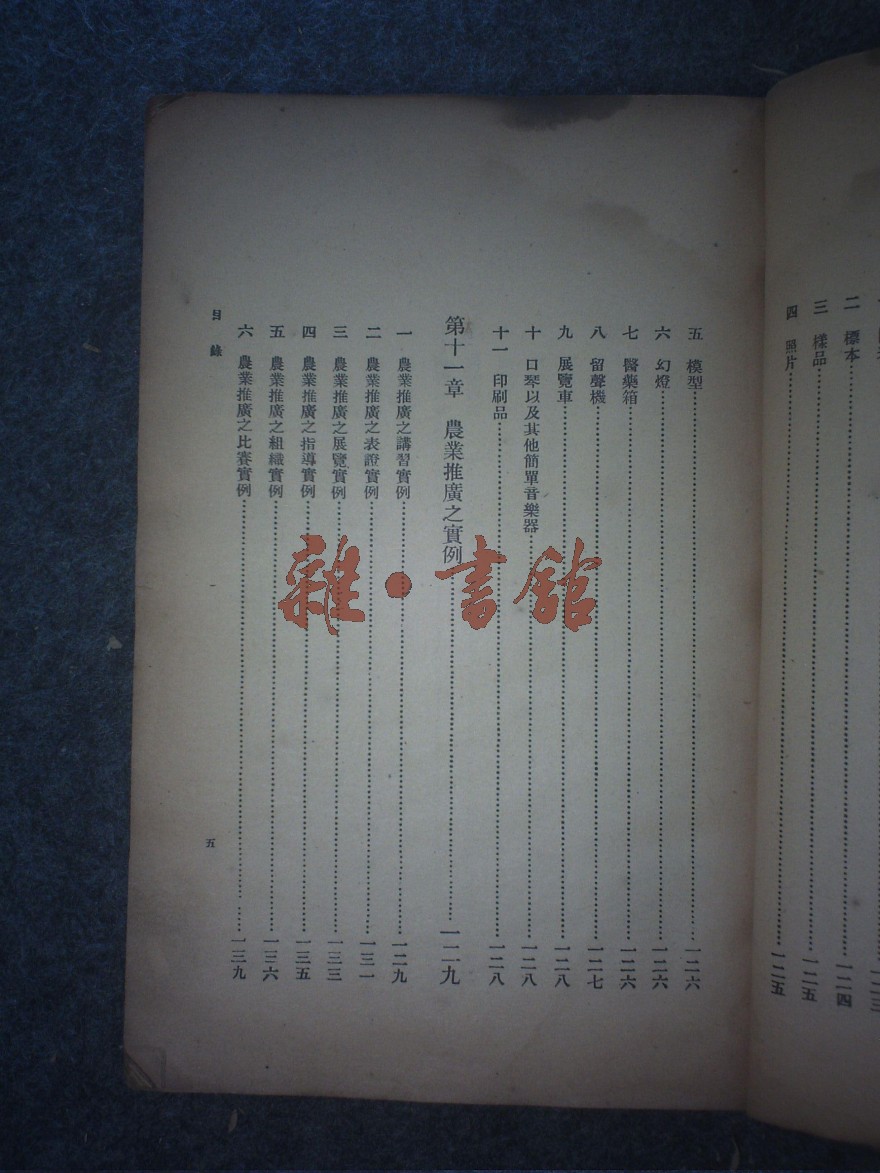 二　標本……一二四
三　樣品……一二五
四　照片……一二五
五　模型……一二六
六　幻燈……一二六
七　醫藥箱……一二六
八　留聲機……一二七
九　展覽車……一二八
十　口琴以及其他簡單音樂器……一二八
十一　印刷品……一二八
第十一章　農業推廣之實例……一二九
一　農業推廣之講習實例……一二九
二　農業推廣之表證實例……一三一
三　農業推廣之展覽實例……一三三
四　農業推廣之指導實例……一三五
五　農業推廣之組織實例……一三六
六　農業推廣之比賽實例……一三九
目錄　五
雜·書館